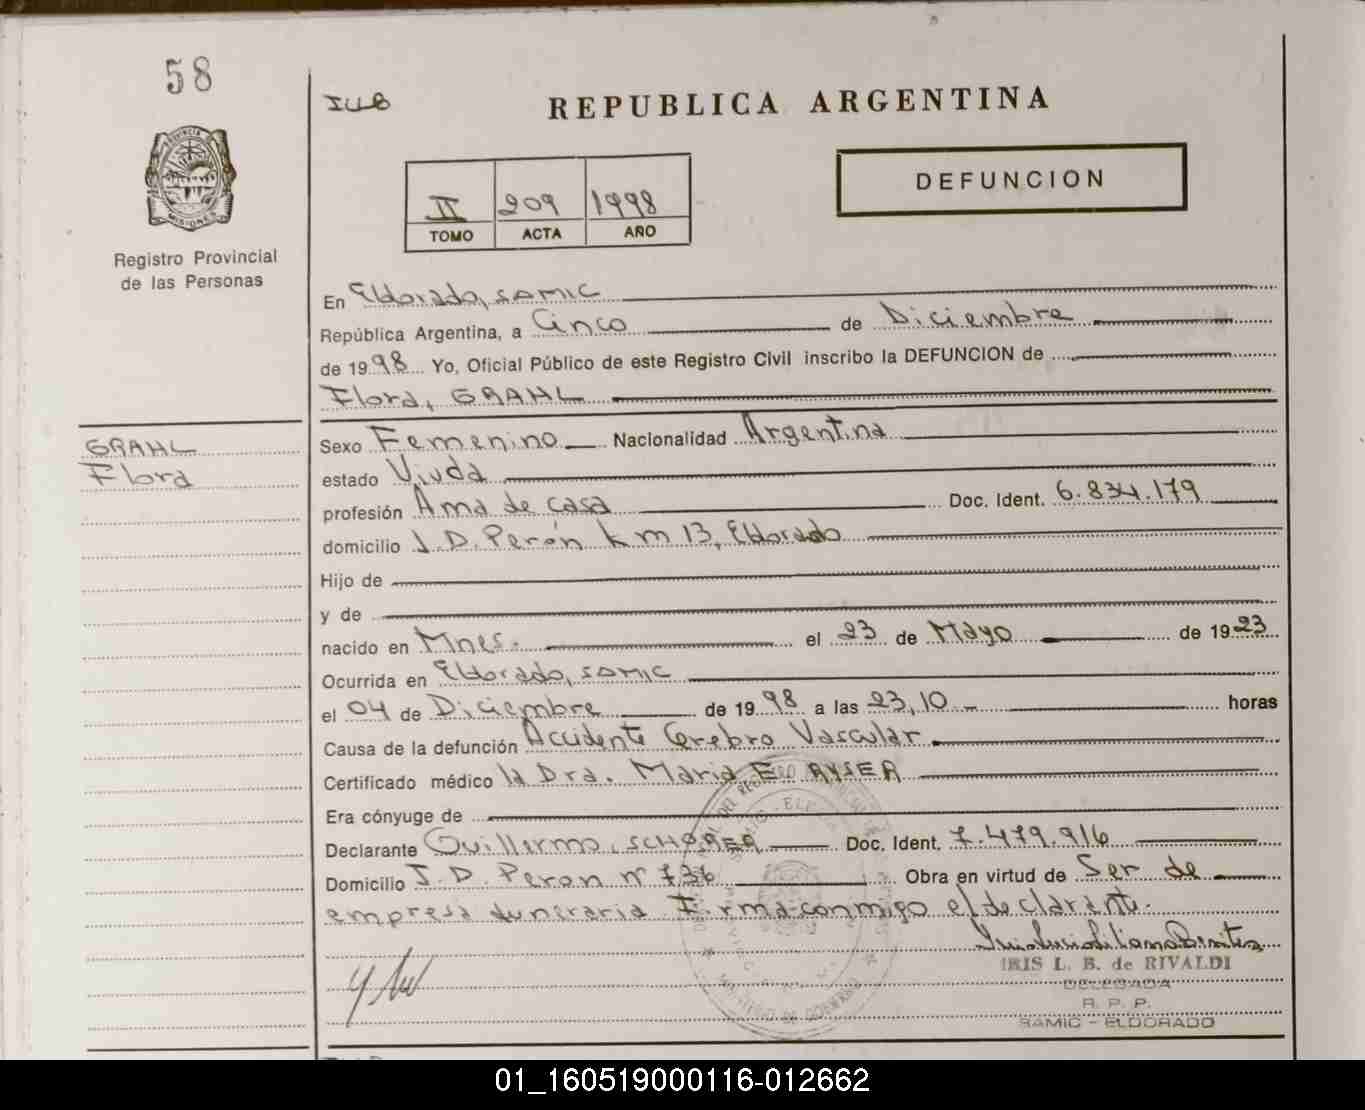 58
PROVINCIA DE
MISIONES
Registro Provincial
de las Personas
GRAHL
Flora
ILB
REPUBLICA ARGENTINA
II 209 1998
TOMO ACTA AÑO
DEFUNCION
En Eldorado, SAMIC
República Argentina, a Cinco de Diciembre
de 1998 Yo, Oficial Público de este Registro Civil inscribo la DEFUNCION de
Flora, GRAHL
Sexo Femenino Nacionalidad Argentina
estado Viuda
profesión Ama de casa Doc. Ident. 6.834.179
domicilio J. D. Perón km 13, Eldorado
Hijo de
y de
nacido en Mnes. el 23 de Mayo de 1923
Ocurrida en Eldorado, SAMIC
el 04 de Diciembre de 1998 a las 23,10 horas
Causa de la defunción Accidente Cerebro Vascular
Certificado médico la Dra. Maria E.
Era cónyuge de
Declarante Guillermo, Doc. Ident. 7.479.916
Domicilio J. D. Peron nº 736 Obra en virtud de Ser de
empresa funeraria Firma conmigo el declarante.
IRIS L. B. de RIVALDI
DELEGADA
R. P. P.
SAMIC - ELDORADO
MINISTERIO DE GOBIERNO
01_160519000116-012662